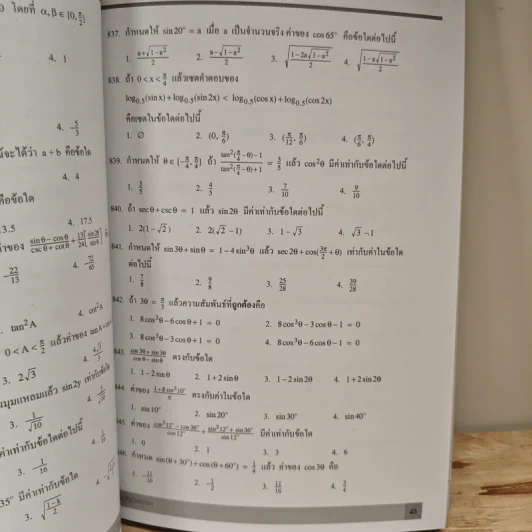 โดยที่ α, β ∈ [0, π/2)
4. 1
4. -5/3
จะได้ว่า a + b คือข้อใด
4. 4
คือข้อใด
3.5
4. 17.5
-22/13
tan²A
4. cot²A
0 < A < π/2 แล้วค่าของ
3. 2√3
มุมแหลมแล้ว sin2y เท่ากับข้อใด
3. 1/√10
ค่าเท่ากับข้อใดต่อไปนี้
3. -1/16
35° มีค่าเท่ากับข้อใด
837. กำหนดให้ sin20° = a เมื่อ a เป็นจำนวนจริง ค่าของ cos65° คือข้อใดต่อไปนี้
1. (a+√(1-a²))/2 2. (a-√(1-a²))/2 3. √((1-2a√(1-a²))/2) 4. √((1-a√(1-a²))/2)
838. ถ้า 0 < x < π/4 แล้วเซตคำตอบของ
log₀.₅(sinx) + log₀.₅(sin2x) < log₀.₅(cosx) + log₀.₅(cos2x)
คือเซตในข้อใดต่อไปนี้
1. ∅ 2. (0, π/6) 3. (π/12, π/6) 4. (π/6, π/4)
839. กำหนดให้ θ ∈ [-π/4, π/4] ถ้า (tan²(π/4-θ)-1)/(tan²(π/4-θ)+1) = 3/5 แล้ว cos²θ มีค่าเท่ากับข้อใดต่อไปนี้
1. 3/5 2. 4/5 3. 7/10 4. 9/10
840. ถ้า secθ + cscθ = 1 แล้ว sin2θ มีค่าเท่ากับข้อใดต่อไปนี้
1. 2(1-√2) 2. 2(√2-1) 3. 1-√3 4. √3-1
841. กำหนดให้ sin3θ + sinθ = 1 - 4sin³θ แล้ว sec2θ + cos(3π/2 + θ) เท่ากับค่าในข้อใด
ต่อไปนี้
1. 7/8 2. 9/8 3. 25/28 4. 39/28
842. ถ้า 3θ = π/3 แล้วความสัมพันธ์ที่ถูกต้องคือ
1. 8cos³θ - 6cosθ + 1 = 0 2. 8cos³θ - 3cosθ - 1 = 0
3. 8cos³θ - 3cosθ + 1 = 0 4. 8cos³θ - 6cosθ - 1 = 0
843. (cos3θ + sin3θ)/(cosθ - sinθ) ตรงกับข้อใด
1. 1 - 2sinθ 2. 1 + 2sinθ 3. 1 - 2sin2θ 4. 1 + 2sin2θ
844. ค่าของ (1+8sin³10°)/6 ตรงกับค่าในข้อใด
1. sin10° 2. sin20° 3. sin30° 4. sin40°
845. ค่าของ (cos³12° - cos36°)/cos12° + (sin³12° + sin36°)/sin12° มีค่าเท่ากับข้อใด
1. 0 2. 1 3. 3 4. 6
846. กำหนด sin(θ + 30°) + cos(θ + 60°) = 1/4 แล้ว ค่าของ cos3θ คือ
1. -11/16 2. -1/2 3. 11/16 4. 3/4
45